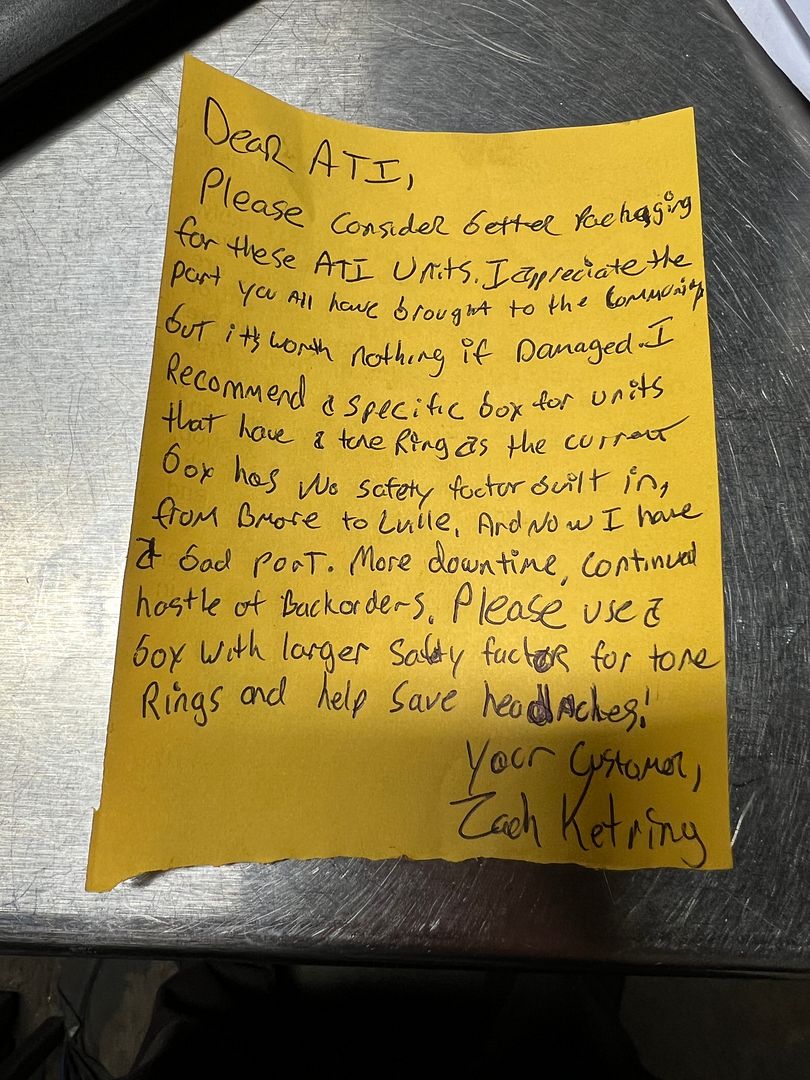 Dear ATI,
Please consider better Packaging
for these ATI Units. I appreciate the
part you all have brought to the community
but it's worth nothing if Damaged. I
Recommend a specific box for units
that have a tone Ring as the current
box has No safety factor built in,
from Bmore to Lville. And Now I have
a bad part. More downtime, continual
hastle of Backorders. Please use a
box with larger Safty factor for tone
Rings and help save headaches!
Your Customer,
Zach Ketring